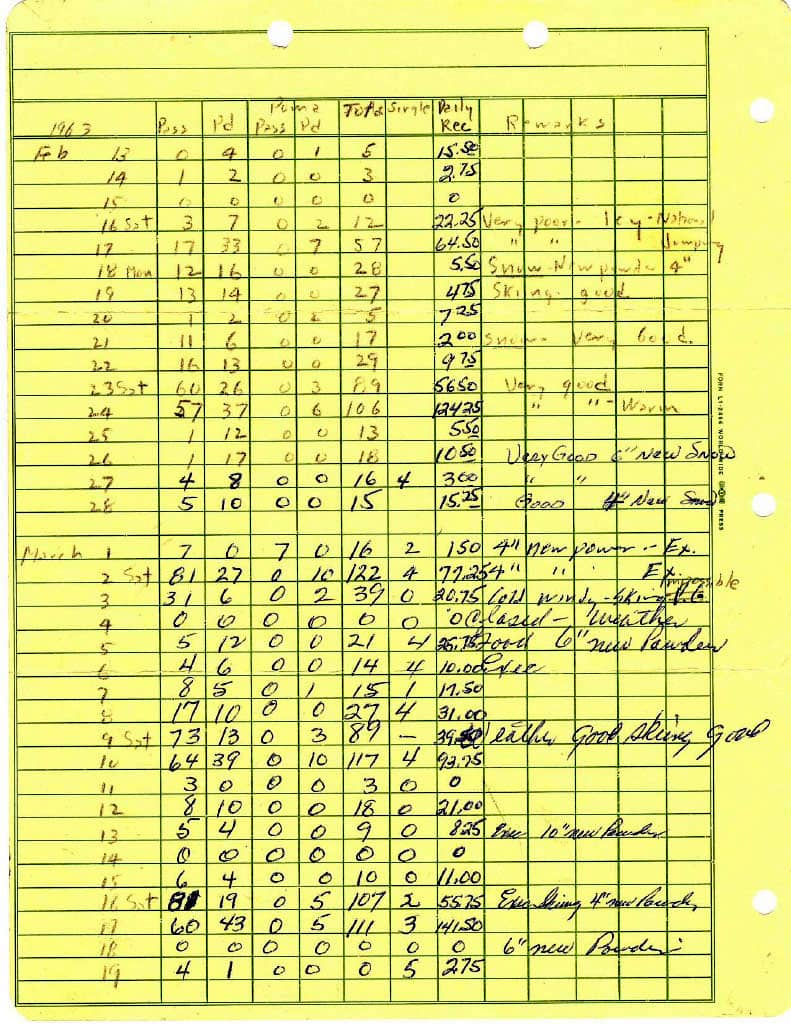 Poma Total Single Daily
1963 Pass Pd Pass Pd Rec Remarks
Feb 13 0 4 0 1 5 15.50
14 1 2 0 0 3 2.75
15 0 0 0 0 0 0
16 Sat 3 7 0 2 12 22.25 Very poor - Icy - National
17 17 33 0 7 57 64.50 " " Jumping
18 Mon 12 16 0 0 28 5.50 Snow - New powder 4"
19 13 14 0 0 27 475 Skiing good
20 1 2 0 2 5 7 25
21 11 6 0 0 17 2 00 Snow - Very Good.
22 16 13 0 0 29 9 75
23 Sat 60 26 0 3 89 5650 Very good
24 57 37 0 6 106 12425 " " - Warm
25 1 12 0 0 13 550
26 1 17 0 0 18 1050 Very Good 6" New Snow
27 4 8 0 0 16 4 300 " "
28 5 10 0 0 15 15.25 Good 4" New Snow
March 1 7 0 7 0 16 2 150 4" New power - Ex.
2 Sat 81 27 0 10 122 4 77.25 4" " " Ex.
3 31 6 0 2 39 0 20.75 Cold windy - Skiing impossible
4 0 0 0 0 0 0 0 Closed - Weather
5 5 12 0 0 21 4 25.75 Good 6" new Powder
6 4 6 0 0 14 4 10.00 Exec
7 8 5 0 1 15 1 17.50
8 17 10 0 0 27 4 31.00
9 Sat 73 13 0 3 89 - Weather Good Skiing Good
10 64 39 0 10 117 4 93.75
11 3 0 0 0 3 0 0
12 8 10 0 0 18 0 21.00
13 5 4 0 0 9 0 8.25 Exec 10" new Powder
14 0 0 0 0 0 0 0
15 6 4 0 0 10 0 11.00
16 Sat 81 19 0 5 107 2 5575 Exec Skiing 4" new Powder
17 60 43 0 5 111 3 141.50
18 0 0 0 0 0 0 0 6" new Powder
19 4 1 0 0 0 5 275
FORM L1-2464 WORLDWIDE PRESS